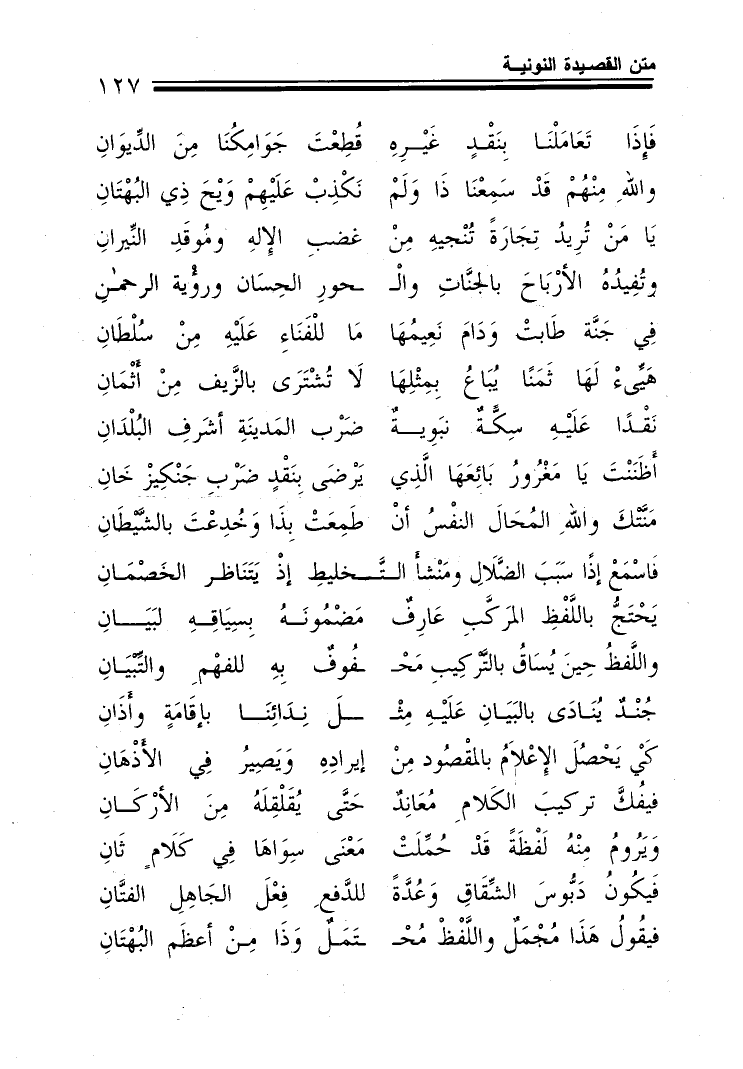 متن القصيدة النونيـة
١٢٧
فَإِذَا تَعَامَلْنَـا بِنَقْـدٍ غَيْـرِهِ قُطِعْتَ جَوَامِكُنَا مِنَ الدِّيوَانِ
واللهِ مِنْهُمْ قَدْ سَمِعْنَا ذَا وَلَمْ نَكْذِبْ عَلَيْهِمْ وَيْحَ ذِي البُهْتَانِ
يَا مَنْ تُرِيدُ تِجَارَةً تُنْجيهِ مِنْ غضبِ الإلهِ ومُوقَدِ النِّيرانِ
وتُفِيدُهُ الأرْبَاحَ بالجَنَّاتِ والْـ ـحورِ الحِسَان ورؤْية الرحمٰنِ
فِي جَنَّة طَابتْ وَدَامَ نَعِيمُهَا مَا لِلْفَنَاءِ عَلَيْهِ مِنْ سُلْطَانِ
هَيِّىءْ لَهَا ثَمَنًا يُبَاعُ بِمِثْلِهَا لَا تُشْتَرَى بالزَّيف مِنْ أَثْمَانِ
نَقْـدًا عَلَيْـهِ سِكَّـةٌ نبَوِيـةٌ ضَرْب المَدينَةِ أشرَفِ البُلْدَانِ
أَظَنَنْتَ يَا مَغْرُورُ بَائِعَهَا الَّذِي يَرْضَى بِنَقْدِ ضَرْبِ جَنْكِيزْ خَانِ
مَنَّتْكَ واللهِ المُحَالَ النفْسُ أنْ طَمِعَتْ بِذَا وَخُدِعْتَ بالشَّيْطَانِ
فَاسْمَعْ إذًا سَبَبَ الضَّلَالِ ومَنْشأَ التَّـخليطِ إذْ يَتَنَاظر الخَصْمَانِ
يَحْتَجُّ باللَّفْظِ المُرَكَّبِ عَارِفٌ مَضْمُونَـهُ بِسِيَاقِـهِ لبَيَـانِ
واللَّفظُ حِينَ يُسَاقُ بالتَّرْكِيبِ مَحْـ ـفُوفٌ بِهِ للفَهْمِ والتِّبْيَانِ
جُنْدٌ يُنَادَى بالبَيَانِ عَلَيْهِ مِثْـ ـلَ نِدَائِنَـا بإقَامَةٍ وأَذَانِ
كَيْ يَحْصُلَ الإعْلَامُ بالمَقْصُود مِنْ إيرادِهِ وَيَصِيرُ فِي الأَذْهَانِ
فيفُكَّ تركيبَ الكَلَامِ مُعَانِدٌ حَتَّى يُقَلْقِلَهُ مِنَ الأرْكَـانِ
وَيَرُومُ مِنْهُ لَفْظَةً قَدْ حُمِّلَتْ مَعْنَى سِوَاهَا فِي كَلَامٍ ثَانِ
فَيكُونُ دَبُّوسَ الشِّقَاقِ وَعُدَّةً للدَّفعِ فِعْلَ الجَاهِلِ الفتَّانِ
فيقُولُ هَذَا مُجْمَلٌ واللَّفْظُ مُحْـ ـتَمَلٌ وَذَا مِنْ أعظَمِ البُهْتَانِ